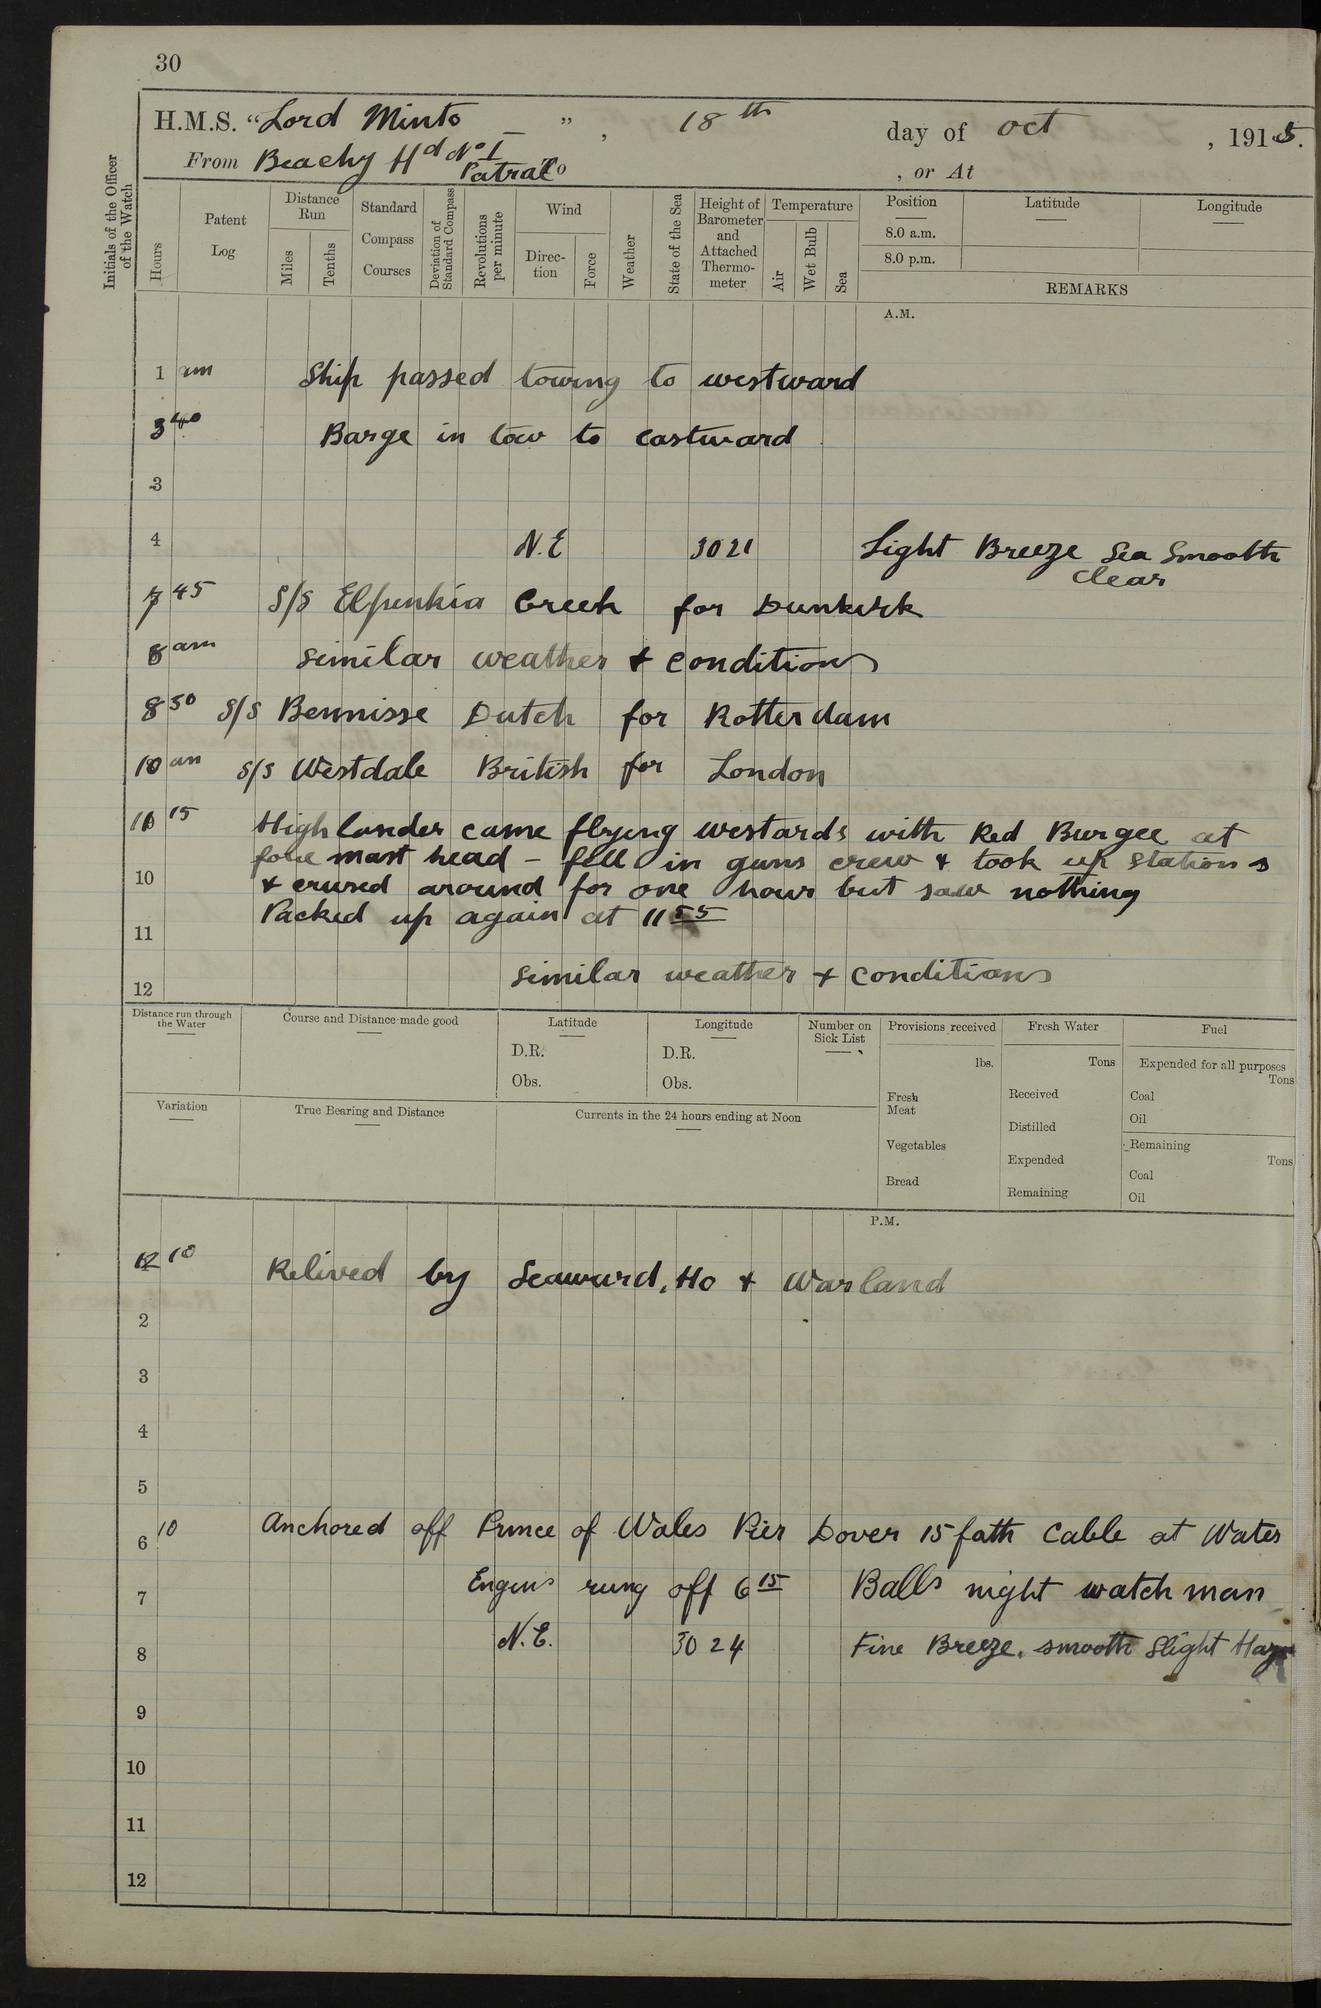 30
H.M.S. "Lord Minto", 18th day of Oct, 1915.
From Beachy Hd No I Patrol To , or At
Initials of the Officer of the Watch
Hours
Patent Log
Distance Run
Miles
Tenths
Standard Compass Courses
Deviation of Standard Compass
Revolutions per minute
Wind
Direction
Force
Weather
State of the Sea
Height of Barometer and Attached Thermometer
Temperature
Air
Wet Bulb
Sea
Position
Latitude
Longitude
8.0 a.m.
8.0 p.m.
REMARKS
A.M.
1 am Ship passed towing to westward
3 40 Barge in tow to eastward
3
4 N.E 30 21 Light Breeze Sea Smooth
clear
7 45 S/S Elpenhia Greek for Dunkirk
8 am similar weather & conditions
8 50 S/S Bennisse Dutch for Rotterdam
10 am S/S Westdale British for London
11 15 Highlander came flying westards with Red Burgee at
fore mast head - fell in guns crew & took up stations
10 & crused around for one hour but saw nothing
Packed up again at 11 55
11
12 similar weather & conditions
Distance run through the Water
Course and Distance made good
Latitude
D.R.
Obs.
Longitude
D.R.
Obs.
Number on Sick List
Provisions received
lbs.
Fresh Meat
Vegetables
Bread
Fresh Water
Tons
Received
Distilled
Expended
Remaining
Fuel
Expended for all purposes
Tons
Coal
Oil
Remaining
Tons
Coal
Oil
Variation
True Bearing and Distance
Currents in the 24 hours ending at Noon
P.M.
12 10 Relived by Seaward, Ho & Warland
2
3
4
5
6 10 Anchored off Prince of Wales Pier Dover 15 fath Cable at Water
7 Engins rung off 6 15 Balls night watch man
8 N.E. 30 24 Fine Breeze. smooth Slight Haze
9
10
11
12